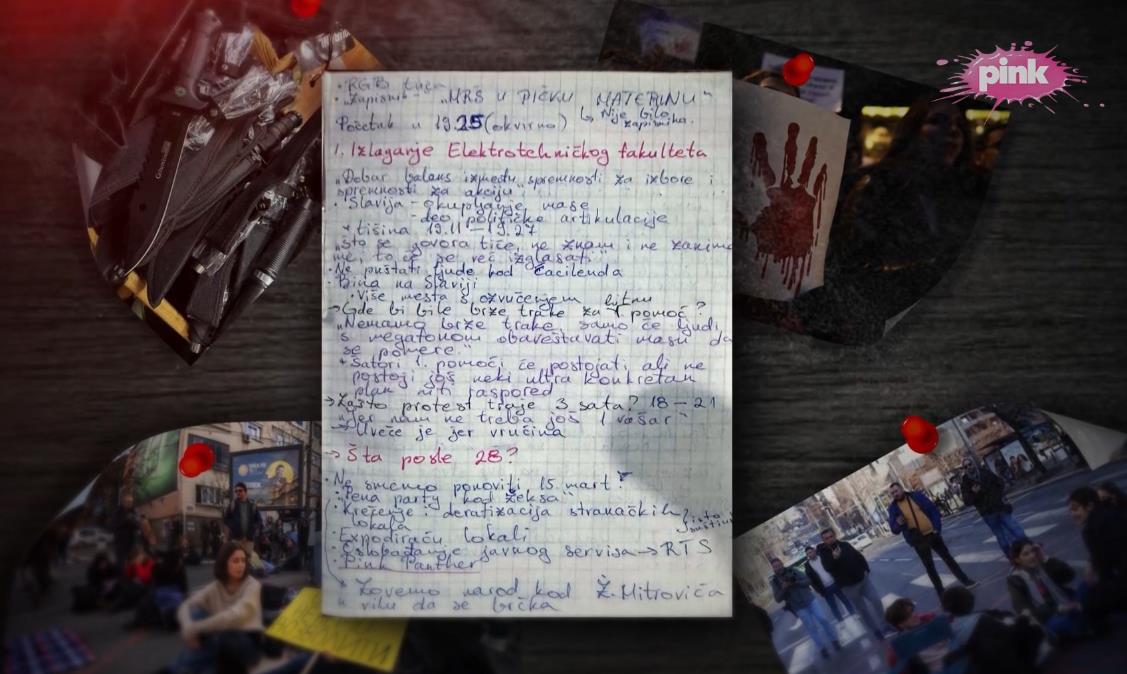 pink
· RGB tuča
· Zapisnik - "MRŠ U PIČKU MATERINU"
↳ Nije bilo
zapisnika.
Početak u 19.25 (okvirno)
1. Izlaganje Elektrotehničkog fakulteta
"Dobar balans između spremnosti za izbore i
spremnosti za akciju"
· Slavija - okupljanje mase
- deo političke artikulacije
* tišina 19.11 - 19.27
"Što se govora tiče, ne znam i ne zanima
me, to će se već izglasati"
· Ne puštati ljude kod Ćacilenda
· Bina na Slaviji
· Više mesta s ozvučenjem bitnu
→ Gde bi bile brze trake za 1 pomoć?
"Nemamo brze trake, samo će ljudi
s megafonom obaveštavati masu da
se pomere."
* Šatori 1. pomoći će postojati ali ne
postoji još neki ultra konkretan
plan niti raspored
→ Zašto protest traje 3 sata? 18 - 21
"Jer nam ne treba još 1 vašar"
- Uveče je jer vrućina
→ Šta posle 28?
Ne smemo ponoviti 15. mart!
· "Pena party kod Žeksa"
· Krečenje i deratizacija stranačkih
lokala
· Expodiraću lokali
· Oslobađanje javnog servisa → RTS
· Pink Panther
* Zovemo narod kod Ž. Mitrovića
u vilu da se brčka